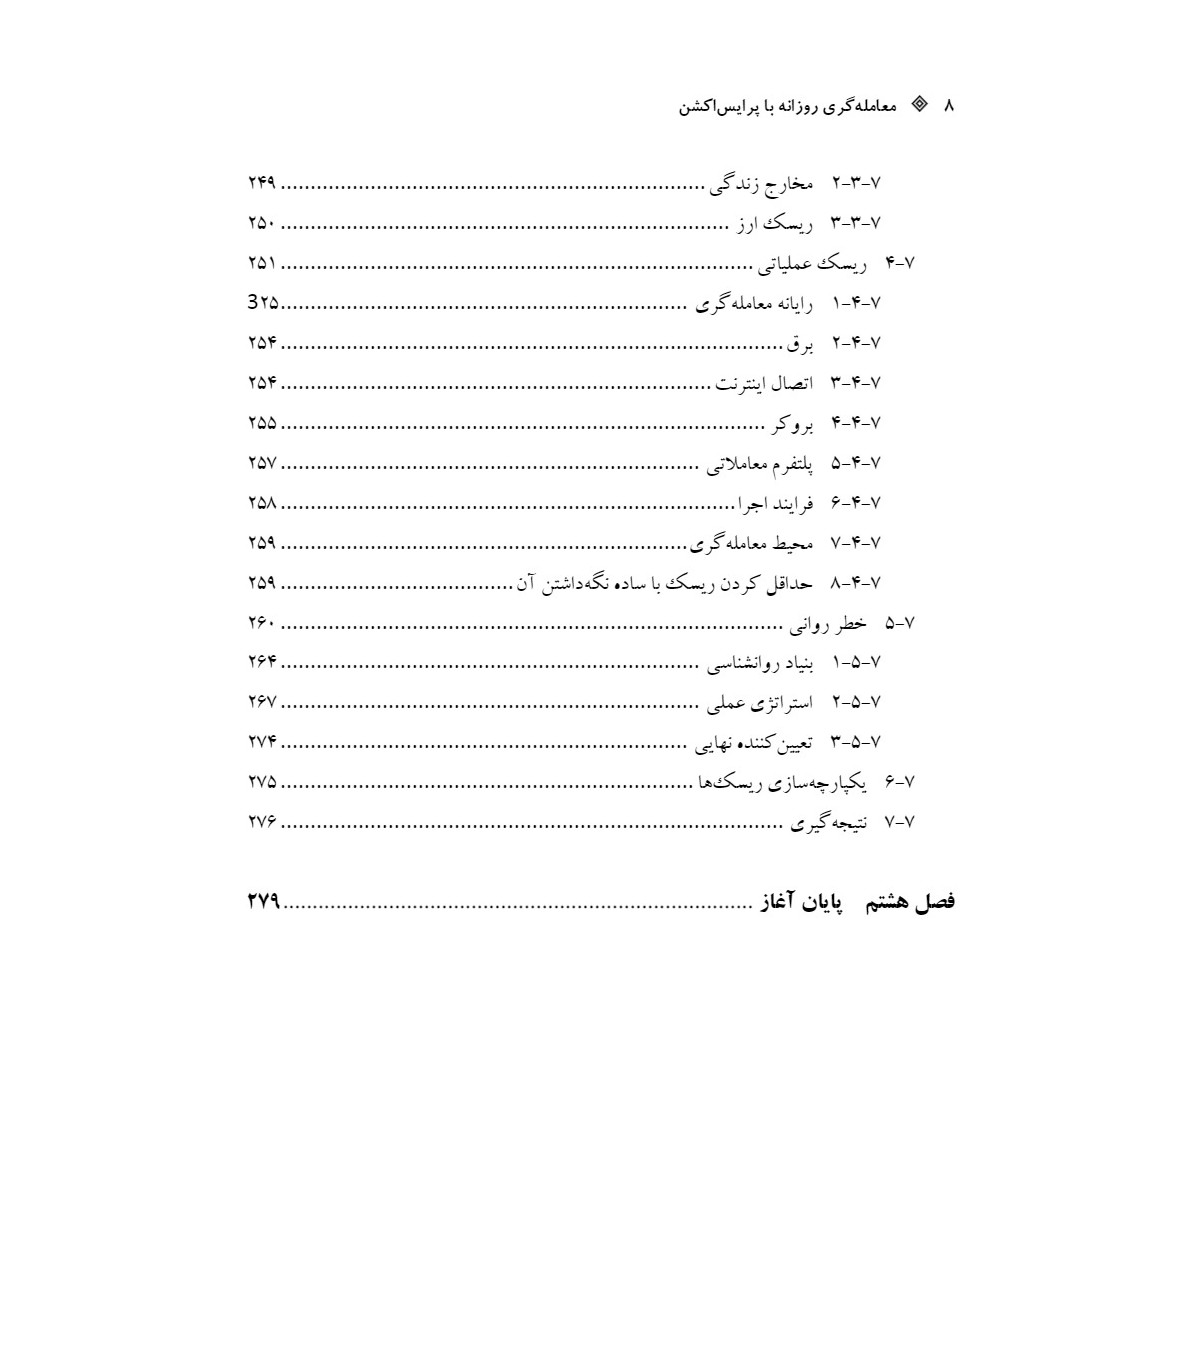 ۸ معامله‌گری روزانه با پرایس‌اکشن
۷-۳-۲ مخارج زندگی ....................................................................... ۲۴۹
۷-۳-۳ ریسک ارز ........................................................................... ۲۵۰
۷-۴ ریسک عملیاتی ............................................................................... ۲۵۱
۷-۴-۱ رایانه معامله‌گری .................................................................... 3۲۵
۷-۴-۲ برق .................................................................................... ۲۵۴
۷-۴-۳ اتصال اینترنت ........................................................................ ۲۵۴
۷-۴-۴ بروکر ................................................................................. ۲۵۵
۷-۴-۵ پلتفرم معاملاتی ...................................................................... ۲۵۷
۷-۴-۶ فرایند اجرا ............................................................................ ۲۵۸
۷-۴-۷ محیط معامله‌گری .................................................................... ۲۵۹
۷-۴-۸ حداقل کردن ریسک با ساده نگه‌داشتن آن ....................................... ۲۵۹
۷-۵ خطر روانی .................................................................................... ۲۶۰
۷-۵-۱ بنیاد روانشناسی ...................................................................... ۲۶۴
۷-۵-۲ استراتژی عملی ...................................................................... ۲۶۷
۷-۵-۳ تعیین‌کننده نهایی .................................................................... ۲۷۴
۷-۶ یکپارچه‌سازی ریسک‌ها ..................................................................... ۲۷۵
۷-۷ نتیجه‌گیری .................................................................................... ۲۷۶
فصل هشتم پایان آغاز ............................................................................... ۲۷۹